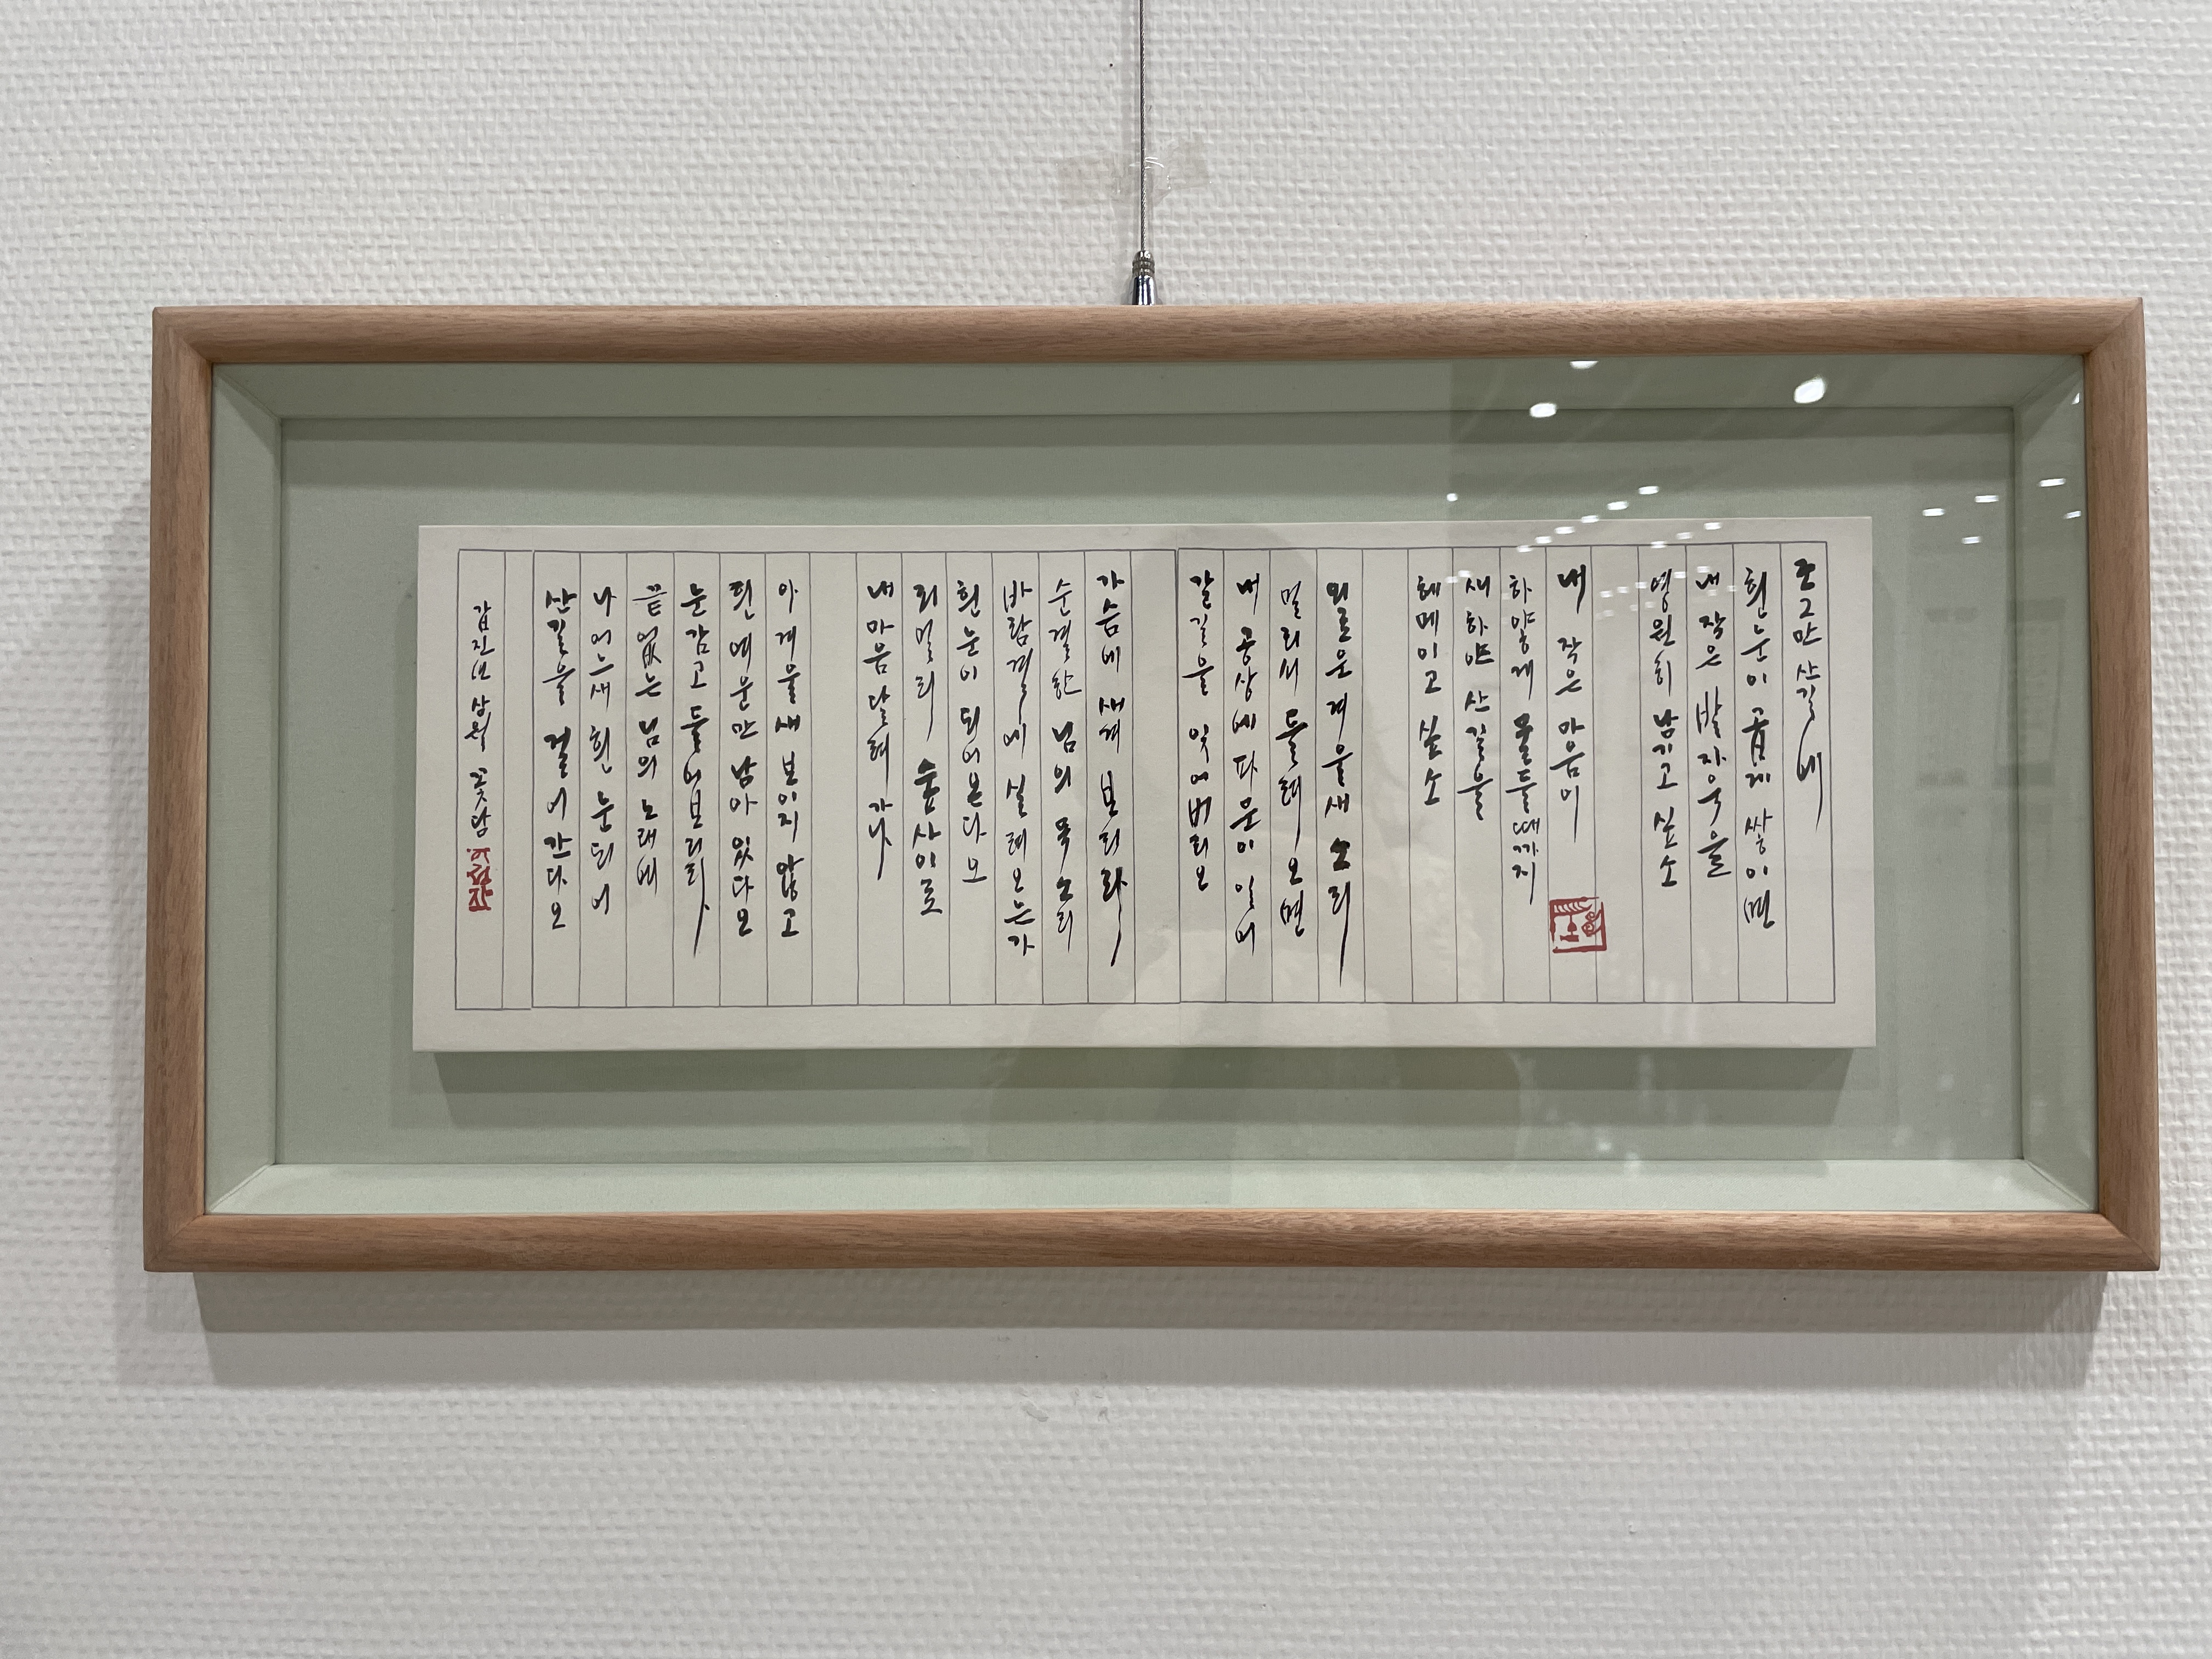 조그만 산길에
흰눈이 곱게 쌓이면
내 작은 발자욱을
영원히 남기고 싶소
내 작은 마음이
하얗게 물들때까지
새하얀 산길을
헤메이고 싶소
외로운 겨울새 소리
멀리서 들려오면
내 공상에 파문이 일어
갈길을 잊어버리오
가슴에 새겨 보리라
순결한 님의 목소리
바람결에 실려오는가
흰눈이 되어온다오
저멀리 숲사이로
내 마음 달려가나
아 겨울새 보이지 않고
흰 여운만 남아 있다오
눈감고 들어보리라
끝없는 님의 노래여
나 어느새 흰 눈되어
산길을 걸어간다오
갑진년 삼월 꽃담